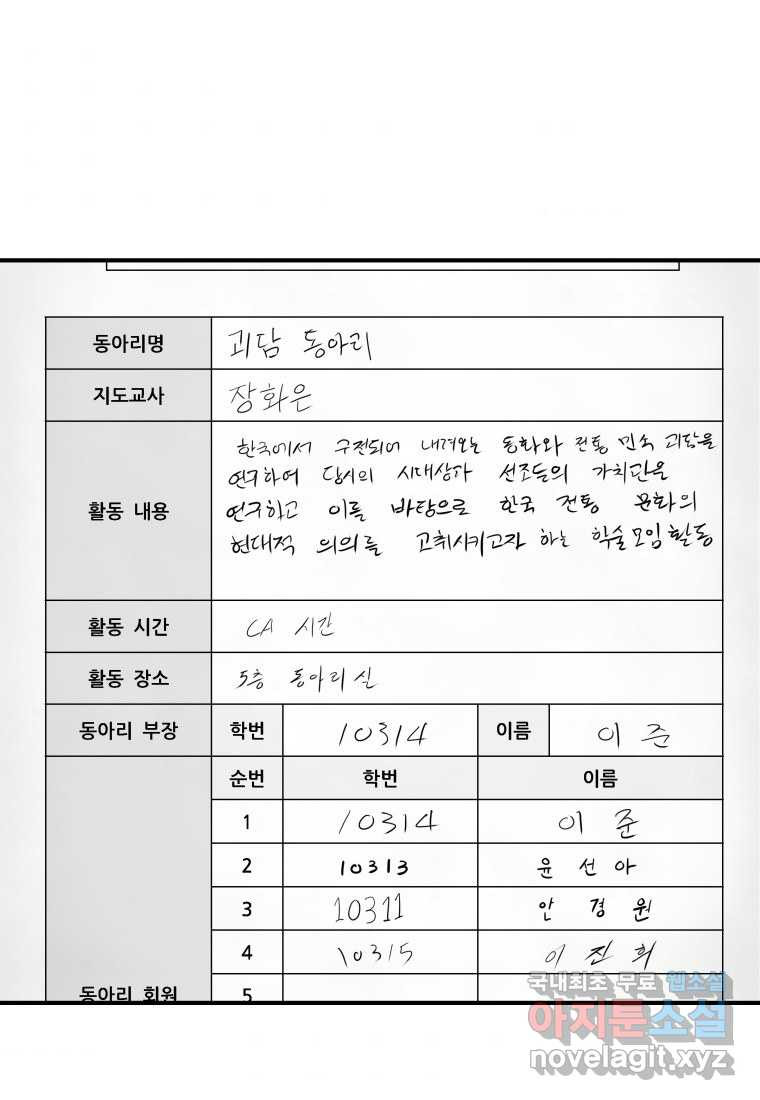 동아리명 괴담 동아리
지도교사 장화은
활동 내용
한국에서 구전되어 내려오는 동화와 전통 민속 괴담을
연구하여 당시의 시대상과 선조들의 가치관을
연구하고 이를 바탕으로 한국 전통 문화의
현대적 의의를 고취시키고자 하는 학술모임 활동
활동 시간 CA 시간
활동 장소 5층 동아리실
동아리 부장 학번 10314 이름 이준
순번 학번 이름
1 10314 이준
2 10313 윤선아
3 10311 안경원
4 10315 이진희
동아리 회원 5
국내최초 무료 웹소설
아지툰소설
novelagit.xyz